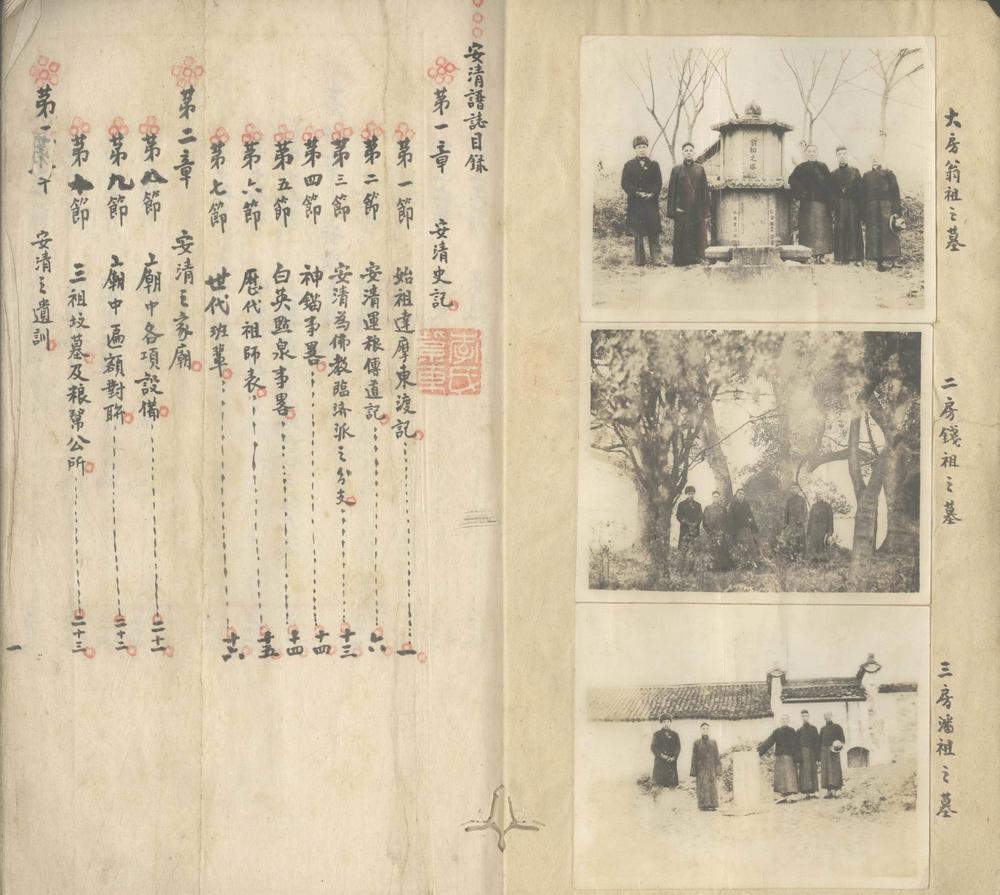 大房翁祖之墓
翁祖之塔
二房錢祖之墓
三房潘祖之墓
安清譜誌目錄
第一章 安清史記
第一節 始祖達摩東渡記 一
第二節 安清運粮傳道記 六
第三節 安清為佛教臨濟派之分支 十三
第四節 神錨事畧 十四
第五節 白英點泉事畧 十四
第六節 歷代祖師表 十五
第七節 世代班輩 十六
第二章 安清之家廟
第八節 上廟中各項設備 二十一
第九節 上廟中匾額對聯 二十二
第十節 三祖坟墓及粮幫公所 二十三
安清之遺訓
一